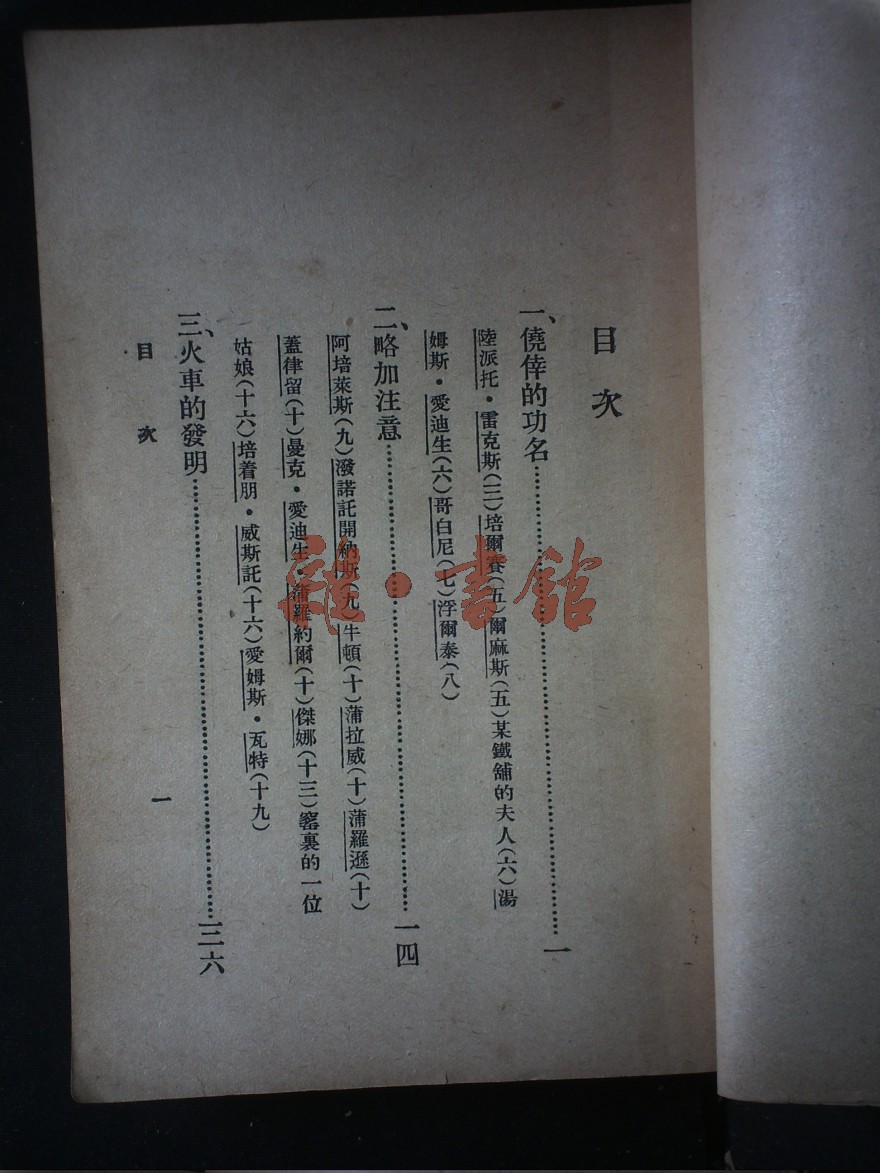 目次
一、僥倖的功名……一
陸派托・雷克斯(三)培爾賽(五)爾麻斯(五)某鐵舖的夫人(六)湯
姆斯・愛迪生(六)哥白尼(七)浮爾泰(八)
二、略加注意……一四
阿培萊斯(九)潑諾託開納斯(九)牛頓(十)蒲拉威(十)蒲羅遜(十)
蓋律留(十)曼克・愛迪生・蒲羅約爾(十)傑娜(十三)窰裏的一位
姑娘(十六)培着朋・威斯託(十六)愛姆斯・瓦特(十九)
三、火車的發明……三六
目次
一
羅・書館